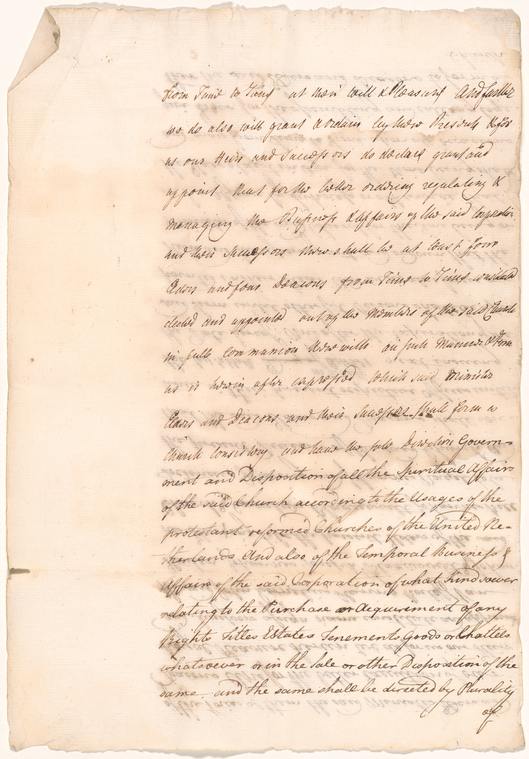 from Time to Time at their will & Pleasure And further
we do also will grant & ordain by these Presents & for
us our Heirs and Successors do declare grant and
appoint that for the better ordering regulating &
managing the Business & Affairs of the said Corporation
and their Successors there shall be at least four
Elders and four Deacons from Time to Time
elected and appointed out of the Members of the said Church
in full Communion therewith in such Manner & Form
as is herein after expressed which said Minister
Elders and Deacons and their Successors shall form a
Church Consistory and have the sole Direction Govern-
ment and Disposition of all the Spiritual Affairs
of the said Church according to the Usages of the
protestant reformed Churches of the United Ne-
therlands And also of the Temporal Business &
Affairs of the said Corporation of what kind soever
relating to the Purchase or Acquirement of any
Rights Titles Estates Tenements Goods or Chattels
whatsoever or in the Sale or other Disposition of the
same and the same shall be directed by Plurality
of